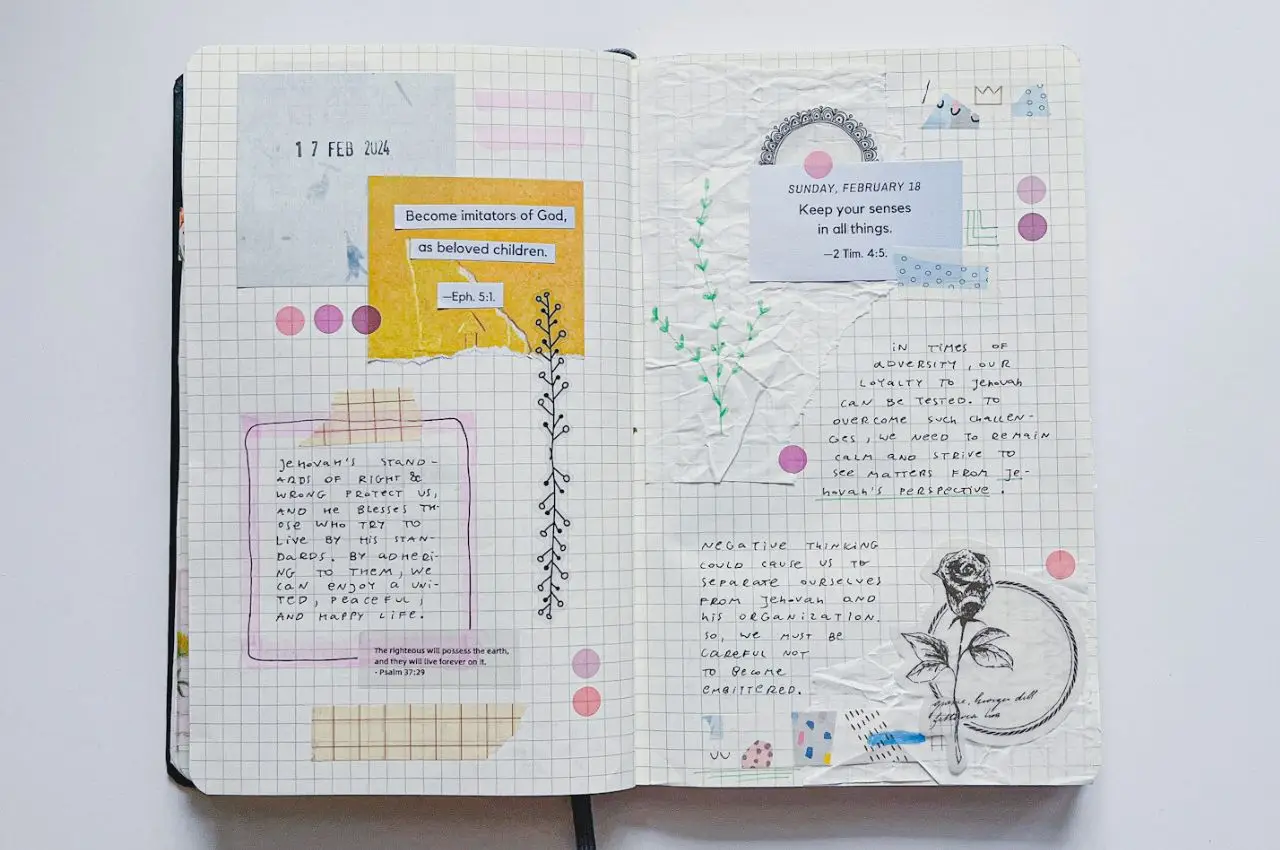 17 FEB 2024
Become imitators of God,
as beloved children.
—Eph. 5:1.
JEHOVAH'S STAND-
ARDS OF RIGHT &
WRONG PROTECT US,
AND HE BLESSES TH-
OSE WHO TRY TO
LIVE BY HIS STAN-
DARDS. BY ADHERI-
NG TO THEM, WE
CAN ENJOY A UNI-
TED, PEACEFUL,
AND HAPPY LIFE.
The righteous will possess the earth,
and they will live forever on it.
- Psalm 37:29
SUNDAY, FEBRUARY 18
Keep your senses
in all things.
—2 Tim. 4:5.
IN TIMES OF
ADVERSITY, OUR
LOYALTY TO JEHOVAH
CAN BE TESTED. TO
OVERCOME SUCH CHALLEN-
GES, WE NEED TO REMAIN
CALM AND STRIVE TO
SEE MATTERS FROM JE-
HOVAH'S PERSPECTIVE.
NEGATIVE THINKING
COULD CAUSE US TO
SEPARATE OURSELVES
FROM JEHOVAH AND
HIS ORGANIZATION.
SO, WE MUST BE
CAREFUL NOT
TO BECOME
EMBITTERED.